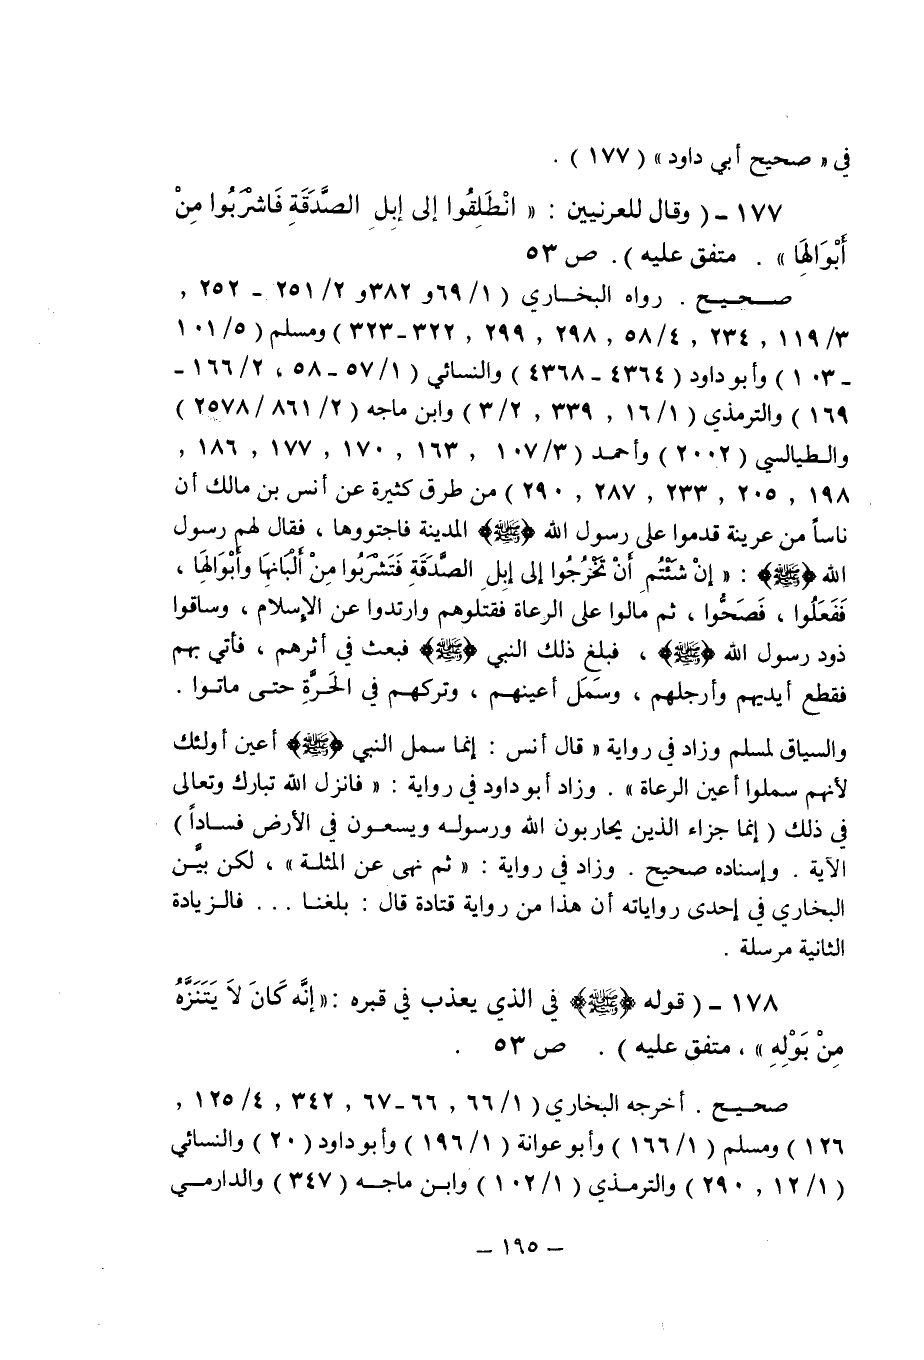 في « صحيح أبي داود » ( ١٧٧ ) .
١٧٧ – ( وقال للعرنيين : « انْطَلِقُوا إلى إبِلِ الصَّدَقَةِ فَاشْرَبُوا مِنْ
أَبْوَالِهَا » . متفق عليه ) . ص ٥٣
صـحـيـح . رواه البخـاري ( ١/ ٦٩و ٣٨٢و ٢/ ٢٥١ – ٢٥٢ ,
٣/ ١١٩ , ٢٣٤ , ٤/ ٥٨ , ٢٩٨ , ٢٩٩ , ٣٢٢ـ٣٢٣ ) ومسلم ( ٥/ ١٠١
– ١٠٣ ) وأبو داود ( ٤٣٦٤ – ٤٣٦٨ ) والنسائي ( ١/ ٥٧ – ٥٨ ، ٢/ ١٦٦ –
١٦٩ ) والترمذي ( ١/ ١٦ , ٣٣٩ , ٢/ ٣ ) وابن ماجه ( ٢/ ٨٦١/ ٢٥٧٨ )
والـطيالسي ( ٢٠٠٢ ) وأحمـد ( ٣/ ١٠٧ , ١٦٣ , ١٧٠ , ١٧٧ , ١٨٦ ,
١٩٨ , ٢٠٥ , ٢٣٣ , ٢٨٧ , ٢٩٠ ) من طرق كثيرة عن أنس بن مالك أن
ناساً من عرينة قدموا على رسول الله ﴿ﷺ﴾ المدينة فاجتووها ، فقال لهم رسول
الله ﴿ﷺ﴾ : « إنْ شَئْتُم أَنْ تَخْرُجُوا إلى إبِلِ الصَّدَقَةِ فَتَشْرَبُوا مِنْ أَلْبَانِهَا وأَبْوَالِهَا ،
فَفَعَلُوا ، فَصَحُّوا ، ثم مالوا على الرعاة فقتلوهم وارتدوا عن الإسلام ، وساقوا
ذود رسول الله ﴿ﷺ﴾ ، فبلغ ذلك النبي ﴿ﷺ﴾ فبعث في أثرهم ، فأتي بهم
فقطع أيديهم وأرجلهم ، وسَمَل أعينهـم ، وتركهـم في الحَرَّةِ حتـى ماتـوا .
والسياق لمسلم وزاد في رواية « قال أنس : إنما سمل النبي ﴿ﷺ﴾ أعين أولئك
لأنهم سملوا أعين الرعاة » . وزاد أبو داود في رواية : « فانزل الله تبارك وتعالى
في ذلك ( إنما جزاء الذين يحاربون الله ورسولـه ويسعـون في الأرض فسـاداً )
الآية . وإسناده صحيح . وزاد في رواية : « ثم نهى عن المثلـة » ، لكن بيَّـن
البخاري في إحدى رواياته أن هذا من رواية قتادة قال : بلغنـا ... فالـزيادة
الثانية مرسلة .
١٧٨ – ( قوله ﴿ﷺ﴾ في الذي يعذب في قبره : « إنَّه كَانَ لاَ يَتَنَزَّهُ
مِنْ بَوْلِهِ » ، متفق عليه ) . ص ٥٣ .
صحـيـح . أخرجه البخاري ( ١/ ٦٦ , ٦٦ـ٦٧ , ٣٤٢ , ٤/ ١٢٥ ,
١٢٦ ) ومسلم ( ١/ ١٦٦ ) وأبو عوانة ( ١/ ١٩٦ ) وأبو داود ( ٢٠ ) والنسائي
( ١/ ١٢ , ٢٩٠ ) والترمـذي ( ١/ ١٠٢ ) وابـن ماجـه ( ٣٤٧ ) والدارمـي
– ١٦٥ –